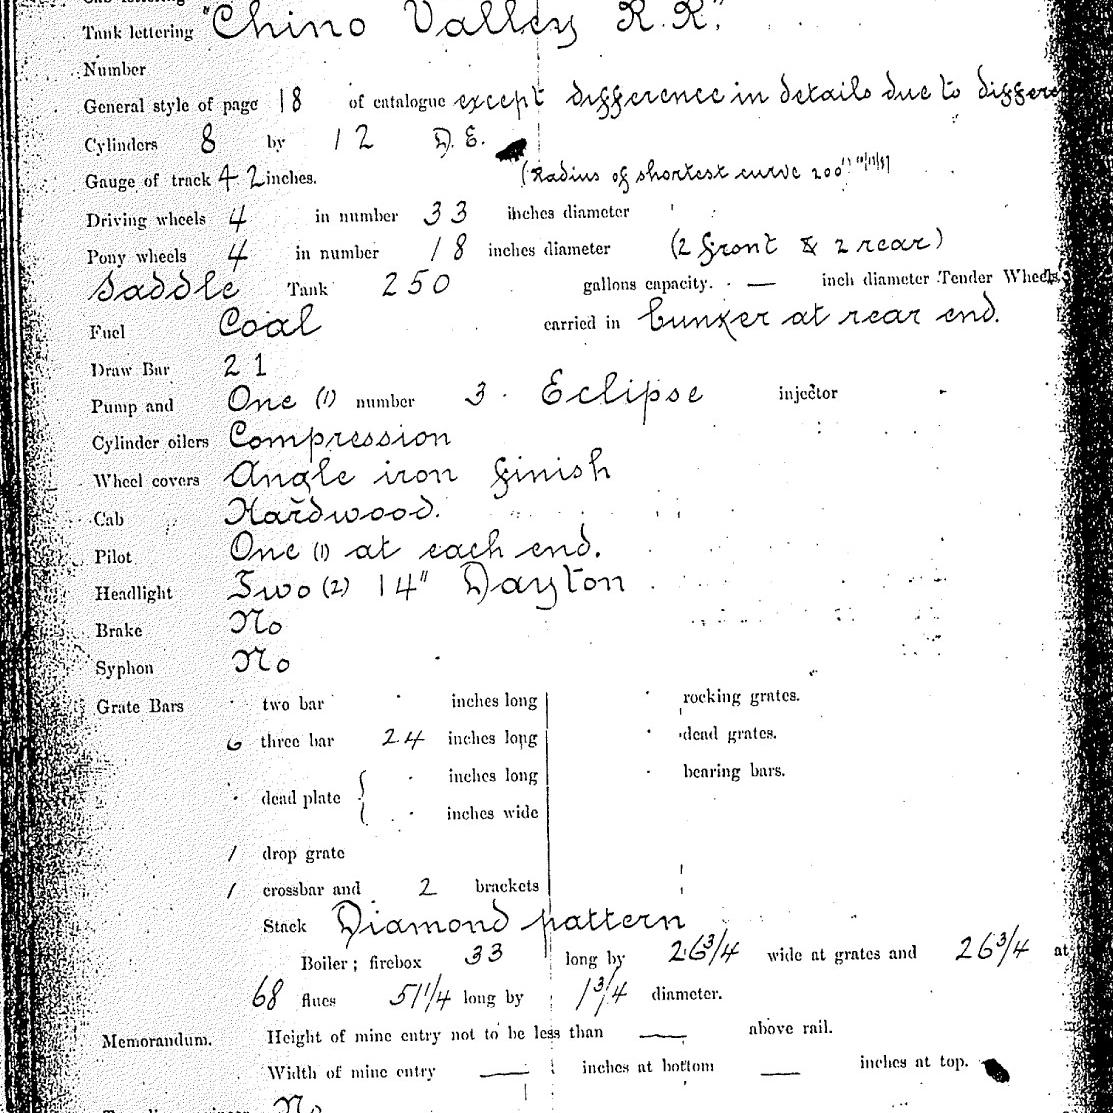 Tank lettering "Chino Valley R.R."
Number
General style of page 18 of catalogue except difference in details due to differe
Cylinders 8 by 12 D.E.
Gauge of track 42 inches. (Radius of shortest curve 200'
Driving wheels 4 in number 33 inches diameter
Pony wheels 4 in number 18 inches diameter (2 front & 2 rear)
Saddle Tank 250 gallons capacity. — inch diameter Tender Wheels
Fuel Coal carried in bunker at rear end.
Draw Bar 21
Pump and One (1) number 3. Eclipse injector
Cylinder oilers Compression
Wheel covers Angle iron finish
Cab Hardwood.
Pilot One (1) at each end.
Headlight Two (2) 14" Dayton
Brake No
Syphon No
Grate Bars two bar inches long rocking grates.
6 three bar 24 inches long dead grates.
inches long bearing bars.
dead plate {
inches wide
1 drop grate
1 crossbar and 2 brackets
Stack Diamond pattern
Boiler; firebox 33 long by 26 3/4 wide at grates and 26 3/4 at
68 flues 51 1/4 long by 1 3/4 diameter.
Memorandum. Height of mine entry not to be less than — above rail.
Width of mine entry — inches at bottom — inches at top.
No